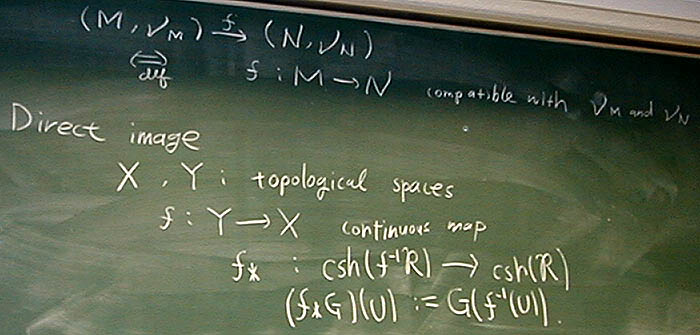 (M, ν_M) →^f (N, ν_N)
⟺ def f : M → N compatible with ν_M and ν_N
Direct image
X , Y : topological spaces
f : Y → X continuous map
f_* : csh(f⁻¹R) → csh(R)
(f_*G)(U) := G(f⁻¹(U)).